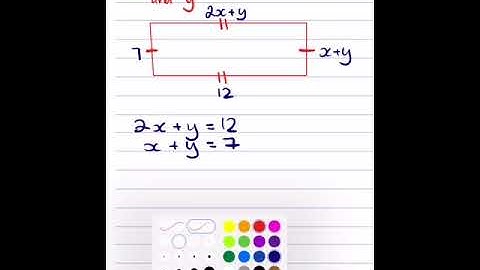 and y
2x+y
7
x+y
12
2x + y = 12
x + y = 7